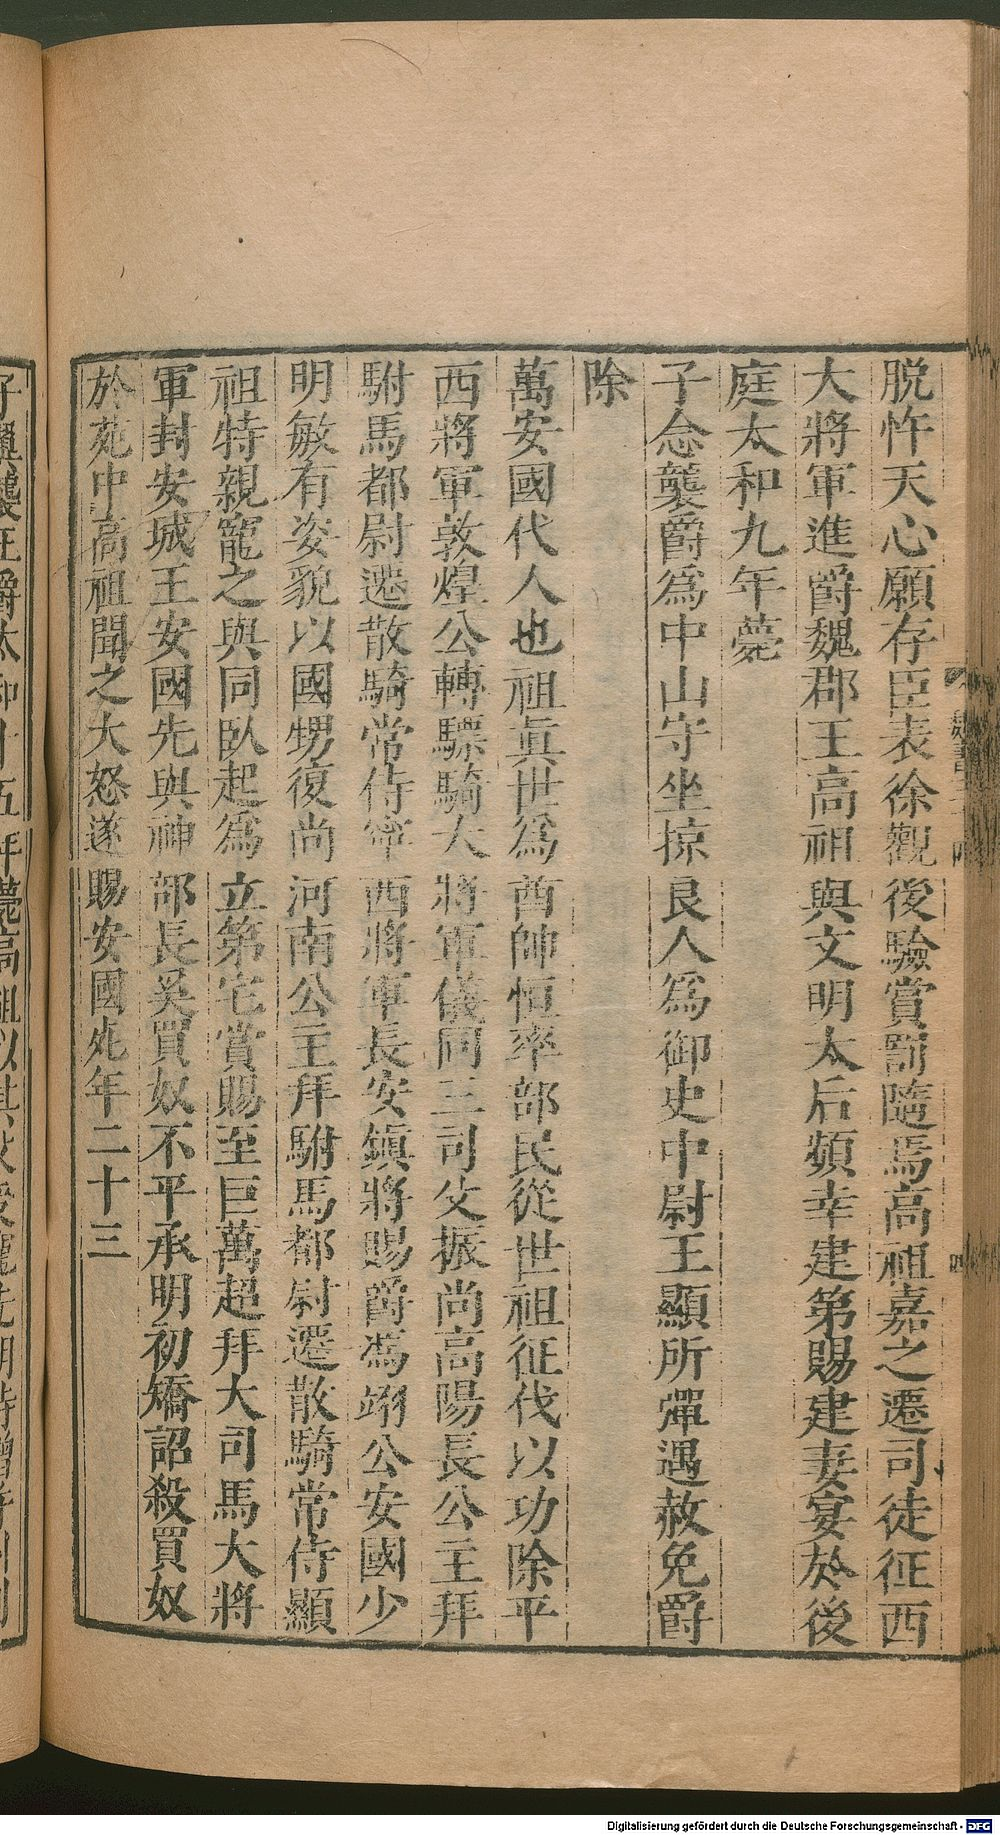 脱忤天心願存臣表徐觀後驗賞罰隨焉高祖嘉之遷司徒征西
大將軍進爵魏郡王高祖與文明太后頻幸建第賜建妻宴於後
庭太和九年薨
子念襲爵為中山守坐掠良人為御史中尉王顯所彈遇赦免爵
除
萬安國代人也祖眞世為酋帥恒率部民從世祖征伐以功除平
西將軍敦煌公轉驃騎大將軍儀同三司父振尚高陽長公主拜
駙馬都尉遷散騎常侍寧西將軍長安鎮將賜爵馮翊公安國少
明敏有姿貌以國甥復尚河南公主拜駙馬都尉遷散騎常侍顯
祖特親寵之與同臥起為立第宅賞賜至巨萬超拜大司馬大將
軍封安城王安國先與神部長奚買奴不平承明初矯詔殺買奴
於苑中高祖聞之大怒遂賜安國死年二十三
Digitalisierung gefördert durch die Deutsche Forschungsgemeinschaft - DFG